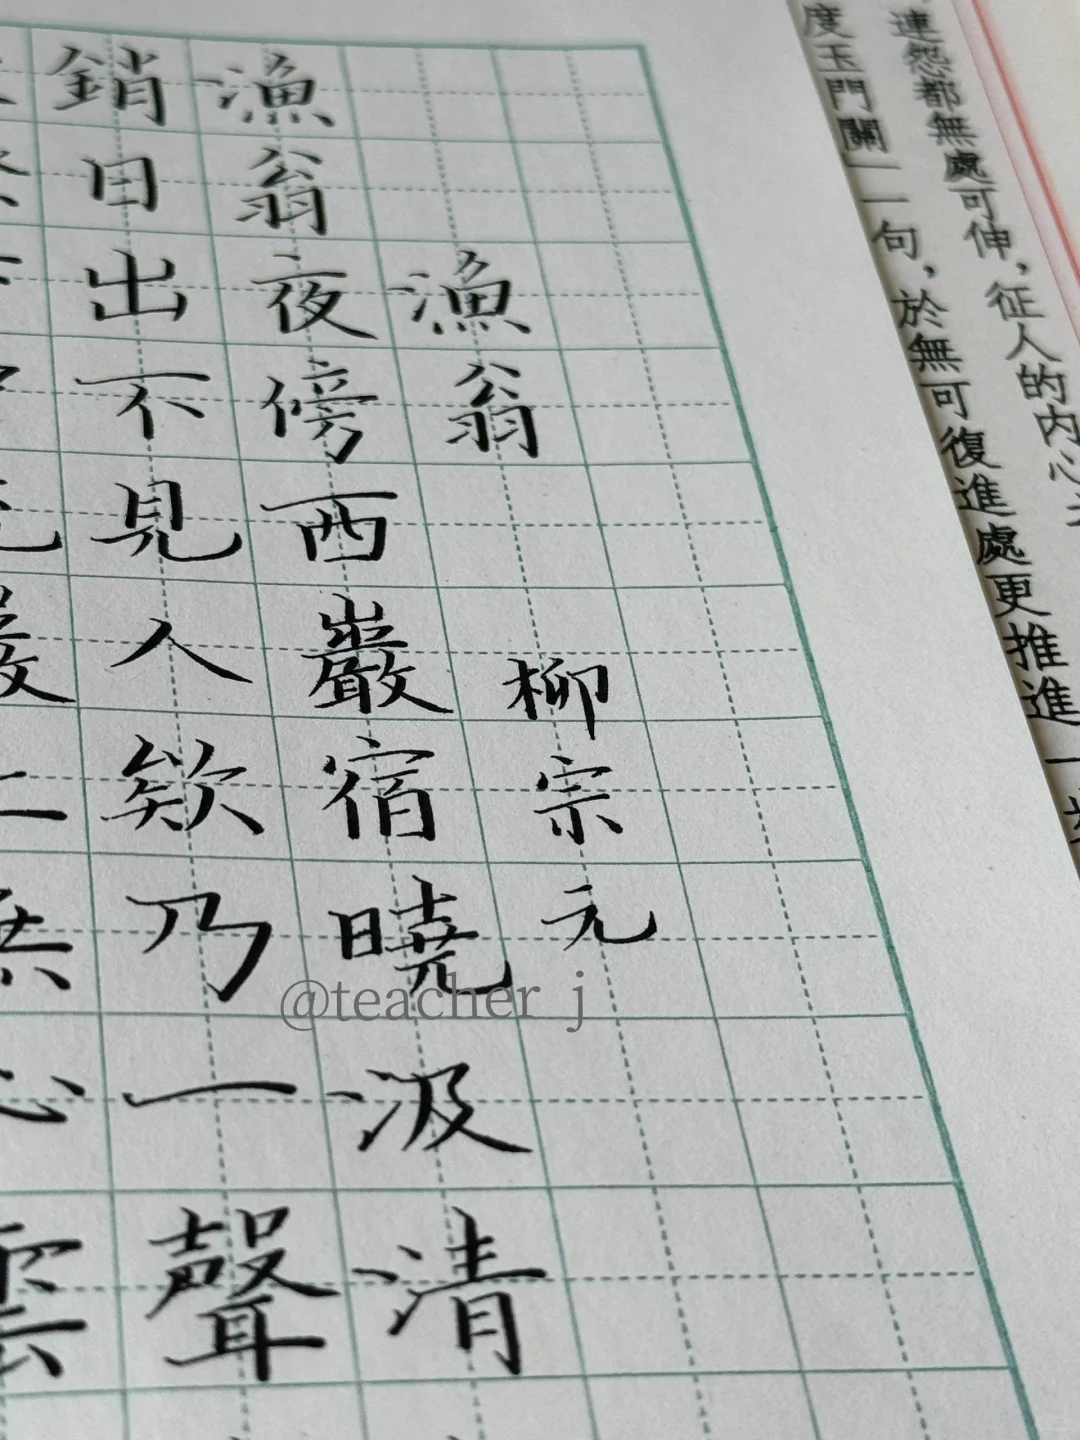 連怨都無處可伸，征人的内心
度玉門關一句，於無可復進處更推進一
漁翁
柳宗元
漁翁夜傍西巖宿曉汲清
銷日出不見人欸乃一聲
巖上無心雲
@teacher j